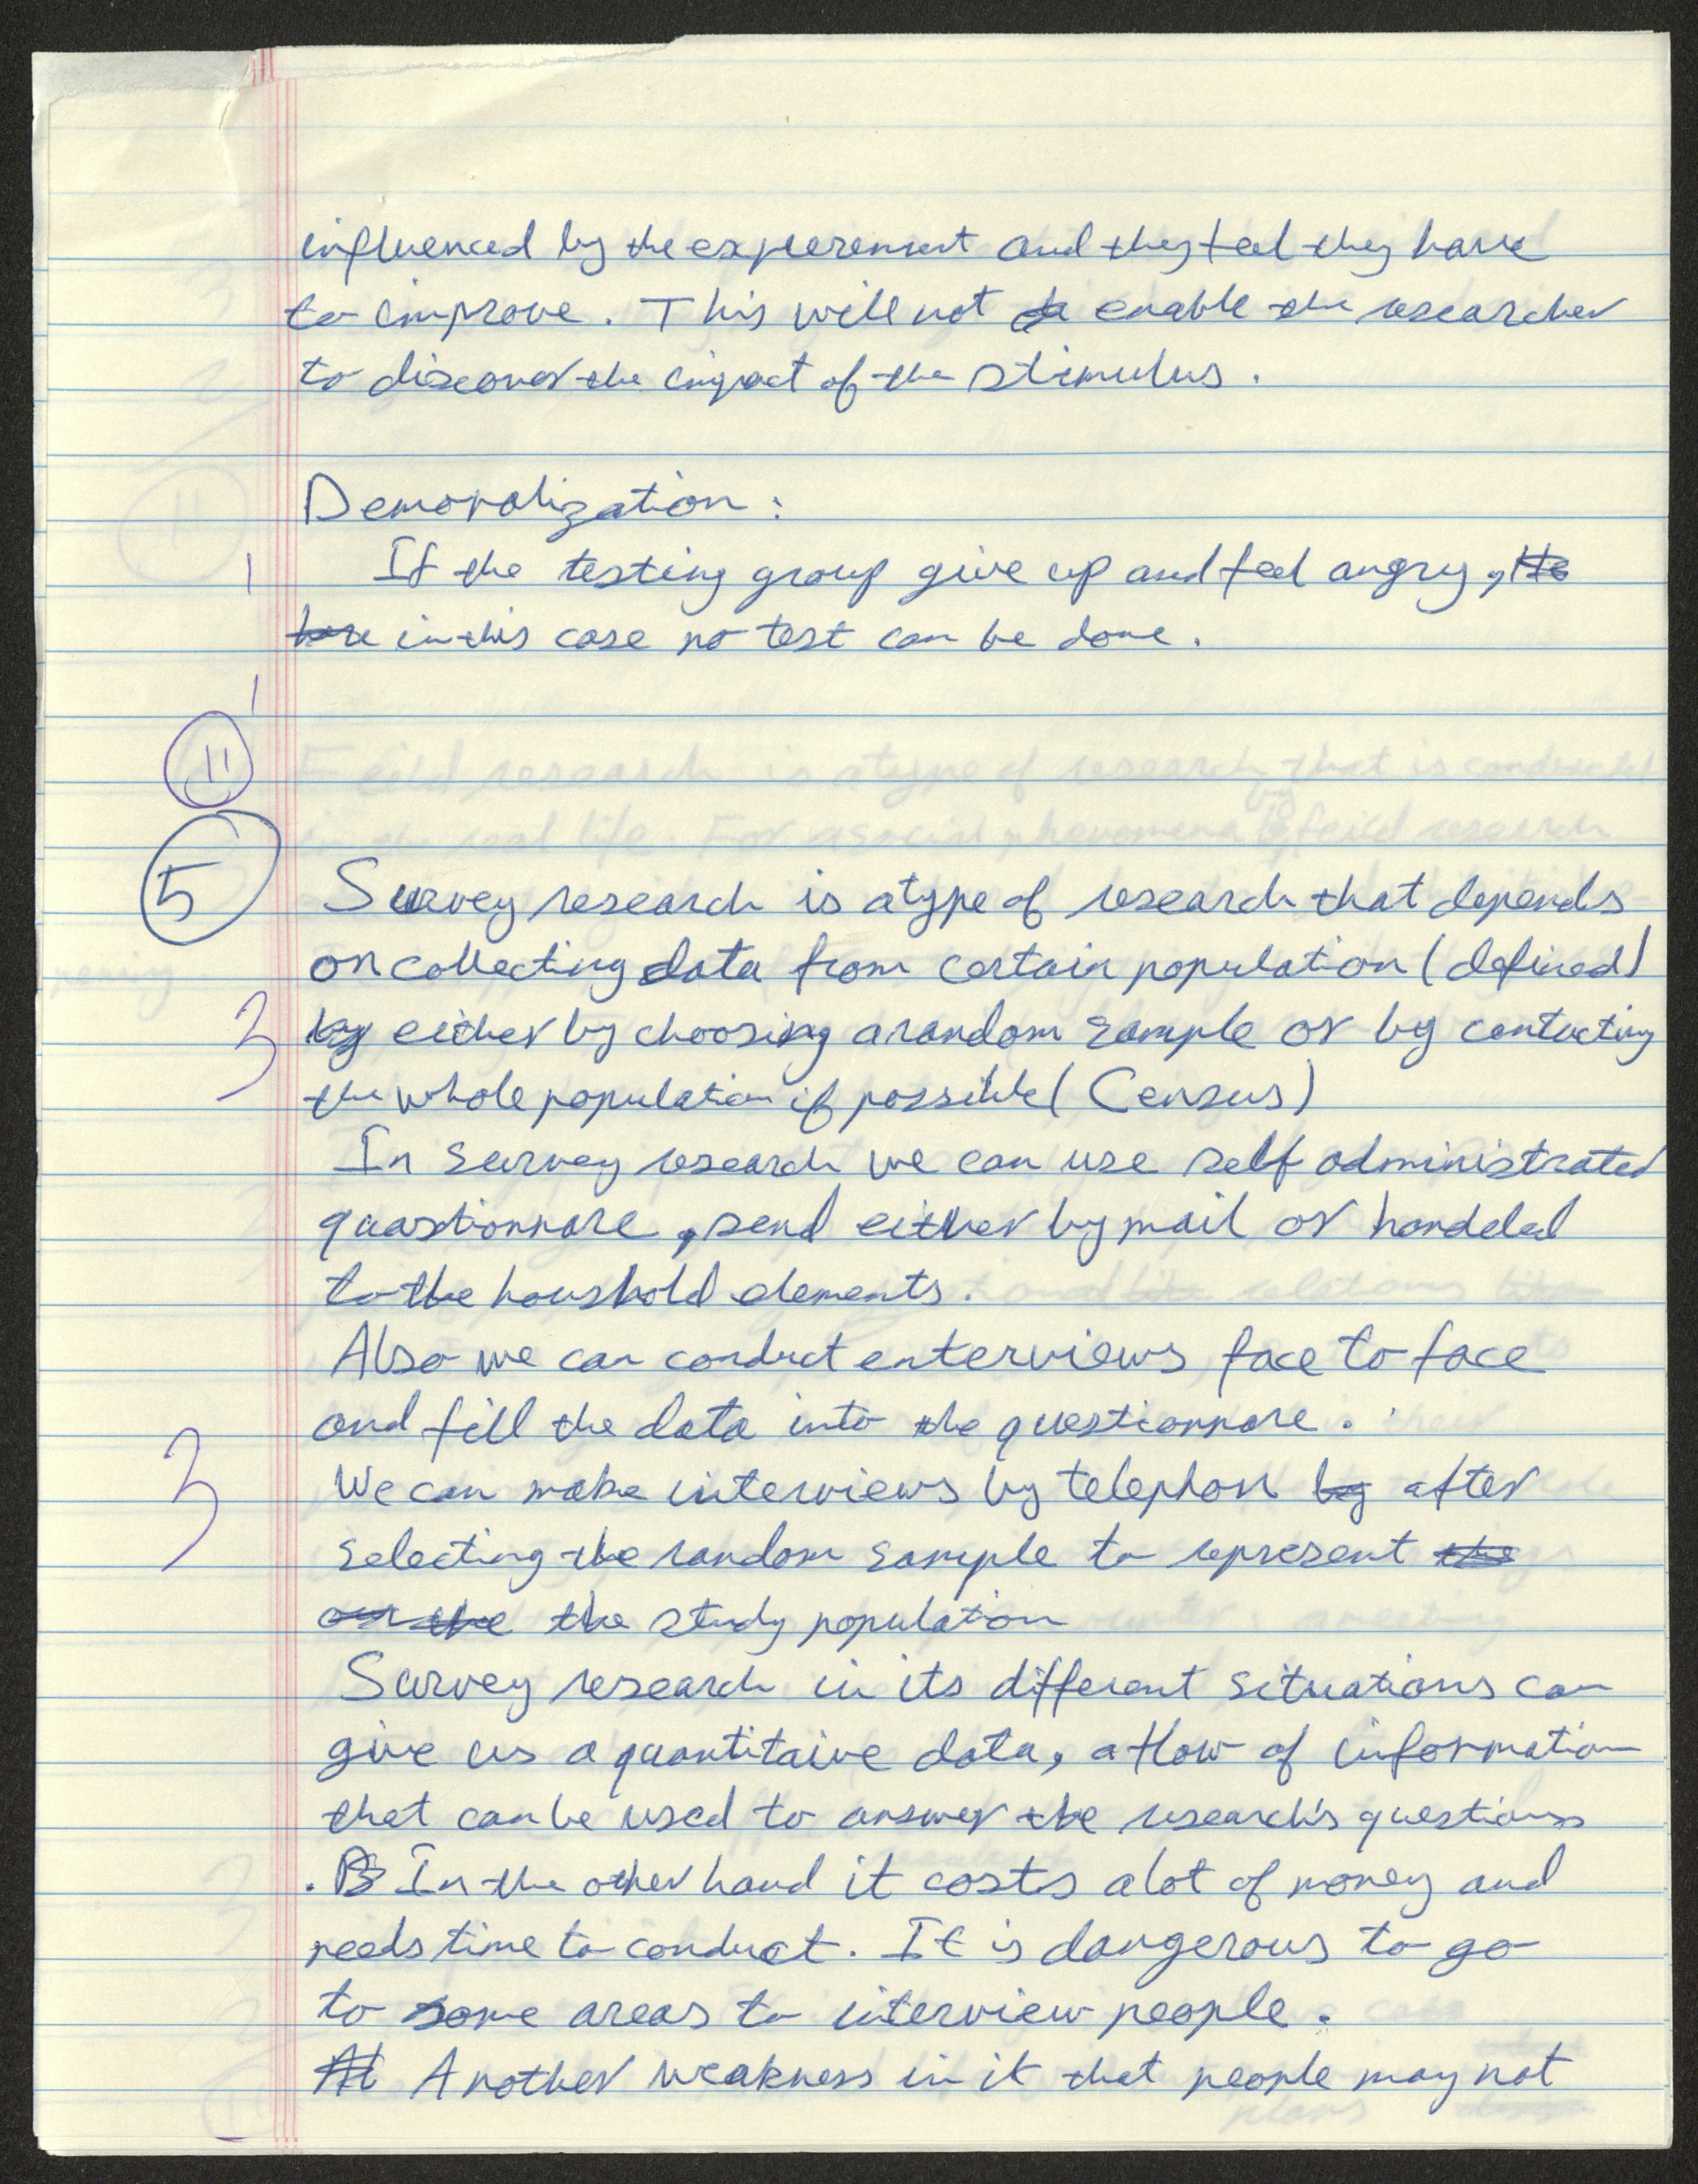 influenced by the experement and they feel they have
to improve. This will not be enable the researcher
to discover the impact of the stimulus.
Demoralization:
1
If the testing group give up and feel angry, the
here in this case no test can be done.
1
11
5
Survey research is a type of research that depends
on collecting data from certain population (defined)
3
by either by choosing a random sample or by contacting
the whole population if possible (Census)
In survey research we can use self administrated
quastionnare, send either by mail or handeled
to the houshold elements.
Also we can conduct enterviews face to face
and fill the data into the questionnare.
3
We can make interviews by telephon by after
selecting the random sample to represent the
on the the study population
Survey research in its different situations can
give us a quantitaive data, a flow of information
that can be used to answer the research's questions
. B In the other hand it costs alot of money and
needs time to conduct. It is dangerous to go
to some areas to interview people.
At Another weakness in it that people may not